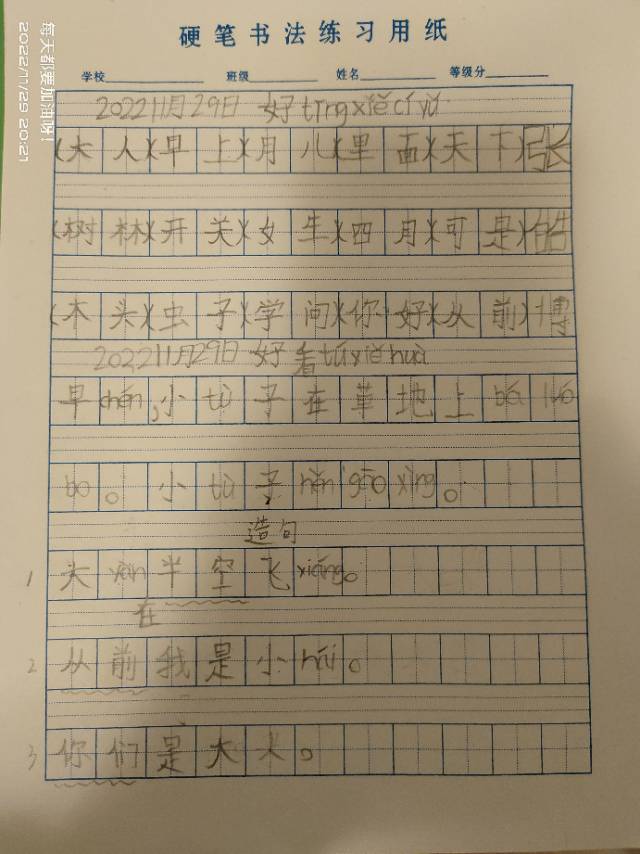 每天都要加油呀！
2022/11/29 20:21
硬笔书法练习用纸
学校 班级 姓名 等级分
2022 11月29日 好tīng xiě cí yǔ
(大人)(早上)(月儿)(里面)(天下)张
(树林)(开关)(女生)(四月)(可是)皓
(木头)(虫子)(学问)(你好)(从前)博
2022 11月29日 好看tú xiě huà
早chén,小tù子在草地上bá luó
bo。小tù子hěn gāo xìng。
造句
1 大yàn半空飞xiáng。
在
2 从前我是小hái。
3 你们是大人。